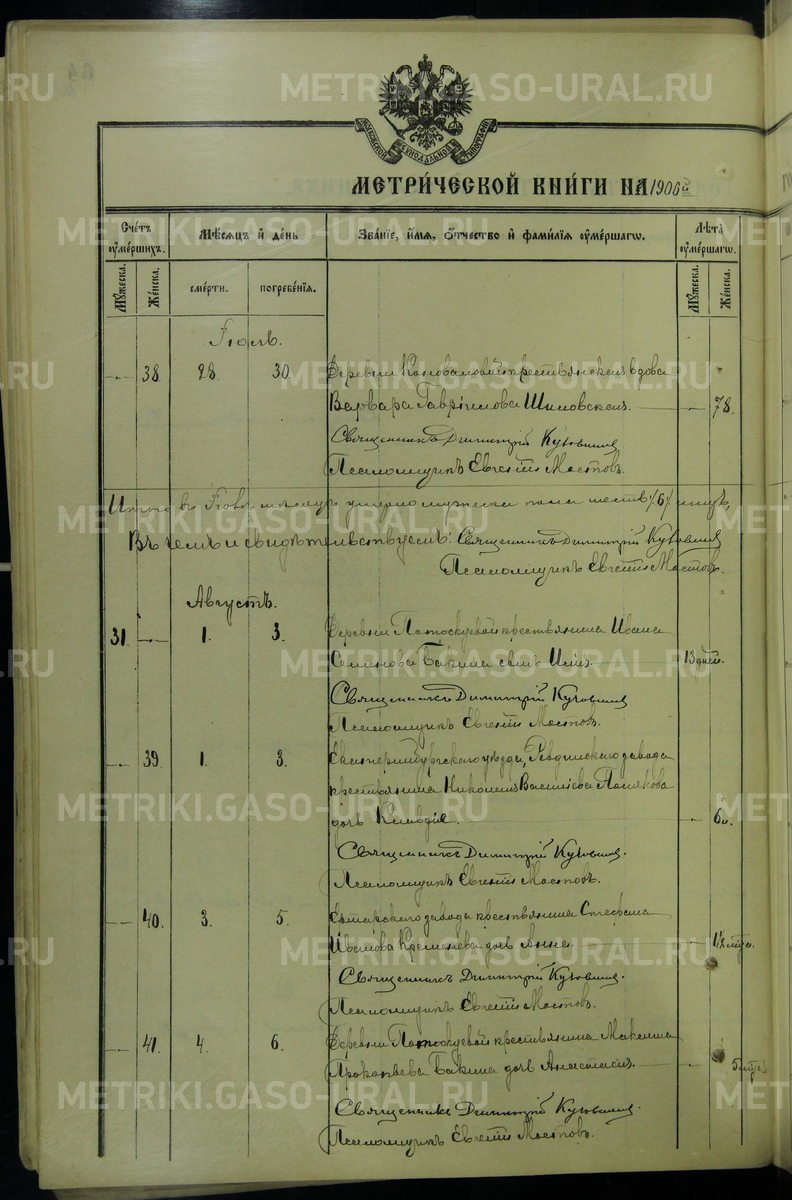 МЕТРИ́ЧЕСКОЙ КНИ́ГИ НА 1906й
Сче́тъ ᲂу҆ме́ршихъ.
Мѣ́сяцъ и҆ де́нь
Зва́нїе, и҆́мя, ѻ҆́тчество и҆ фами́лїя ᲂу҆ме́ршагѡ.
Лѣ́та ᲂу҆ме́ршагѡ.
Мꙋ́жеска.
Же́нска.
сме́рти.
погребе́нїя.
Мꙋ́жеска.
Же́нска.
Іюль.
— 38. 28. 30. Деревни Коноваловой крестьянская вдова
Варвара Гаврiилова Шиловская. — 78.
Священникъ Димитрій
Псаломщикъ Евгеній Мостовъ.
Итого въ Іюлѣ мѣсяцѣ умерло мужеска пола шесть /6/
Въ чемъ и свидѣтельствуемъ: Священникъ Димитрій
Псаломщикъ Евгеній Мостовъ.
Августъ.
31. — 1. 3. Деревни Потоскуевой крестьянина Ивана
Бакина сынъ — 13 дней.
Священникъ Димитрій
Псаломщикъ Евгеній Мостовъ.
— 39. 1. 3. Екатеринбургскаго уѣзда, Ревдинскаго завода
крестьянина Николая Васильева Полякова
дочь Клавдія. — 6
Священникъ Димитрій
Псаломщикъ Евгеній Мостовъ.
— 40. 3. 5. завода крестьянина Стефана
Иванова дочь Анна — 1½ года.
Священникъ Димитрій
Псаломщикъ Евгеній Мостовъ.
— 41. 4. 6. Деревни Потоскуевой крестьянина Максима
Прокопьева Бакина дочь Анастасія. —
Священникъ Димитрій
Псаломщикъ Евгеній Мостовъ.
METRIKI.GASO-URAL.RU